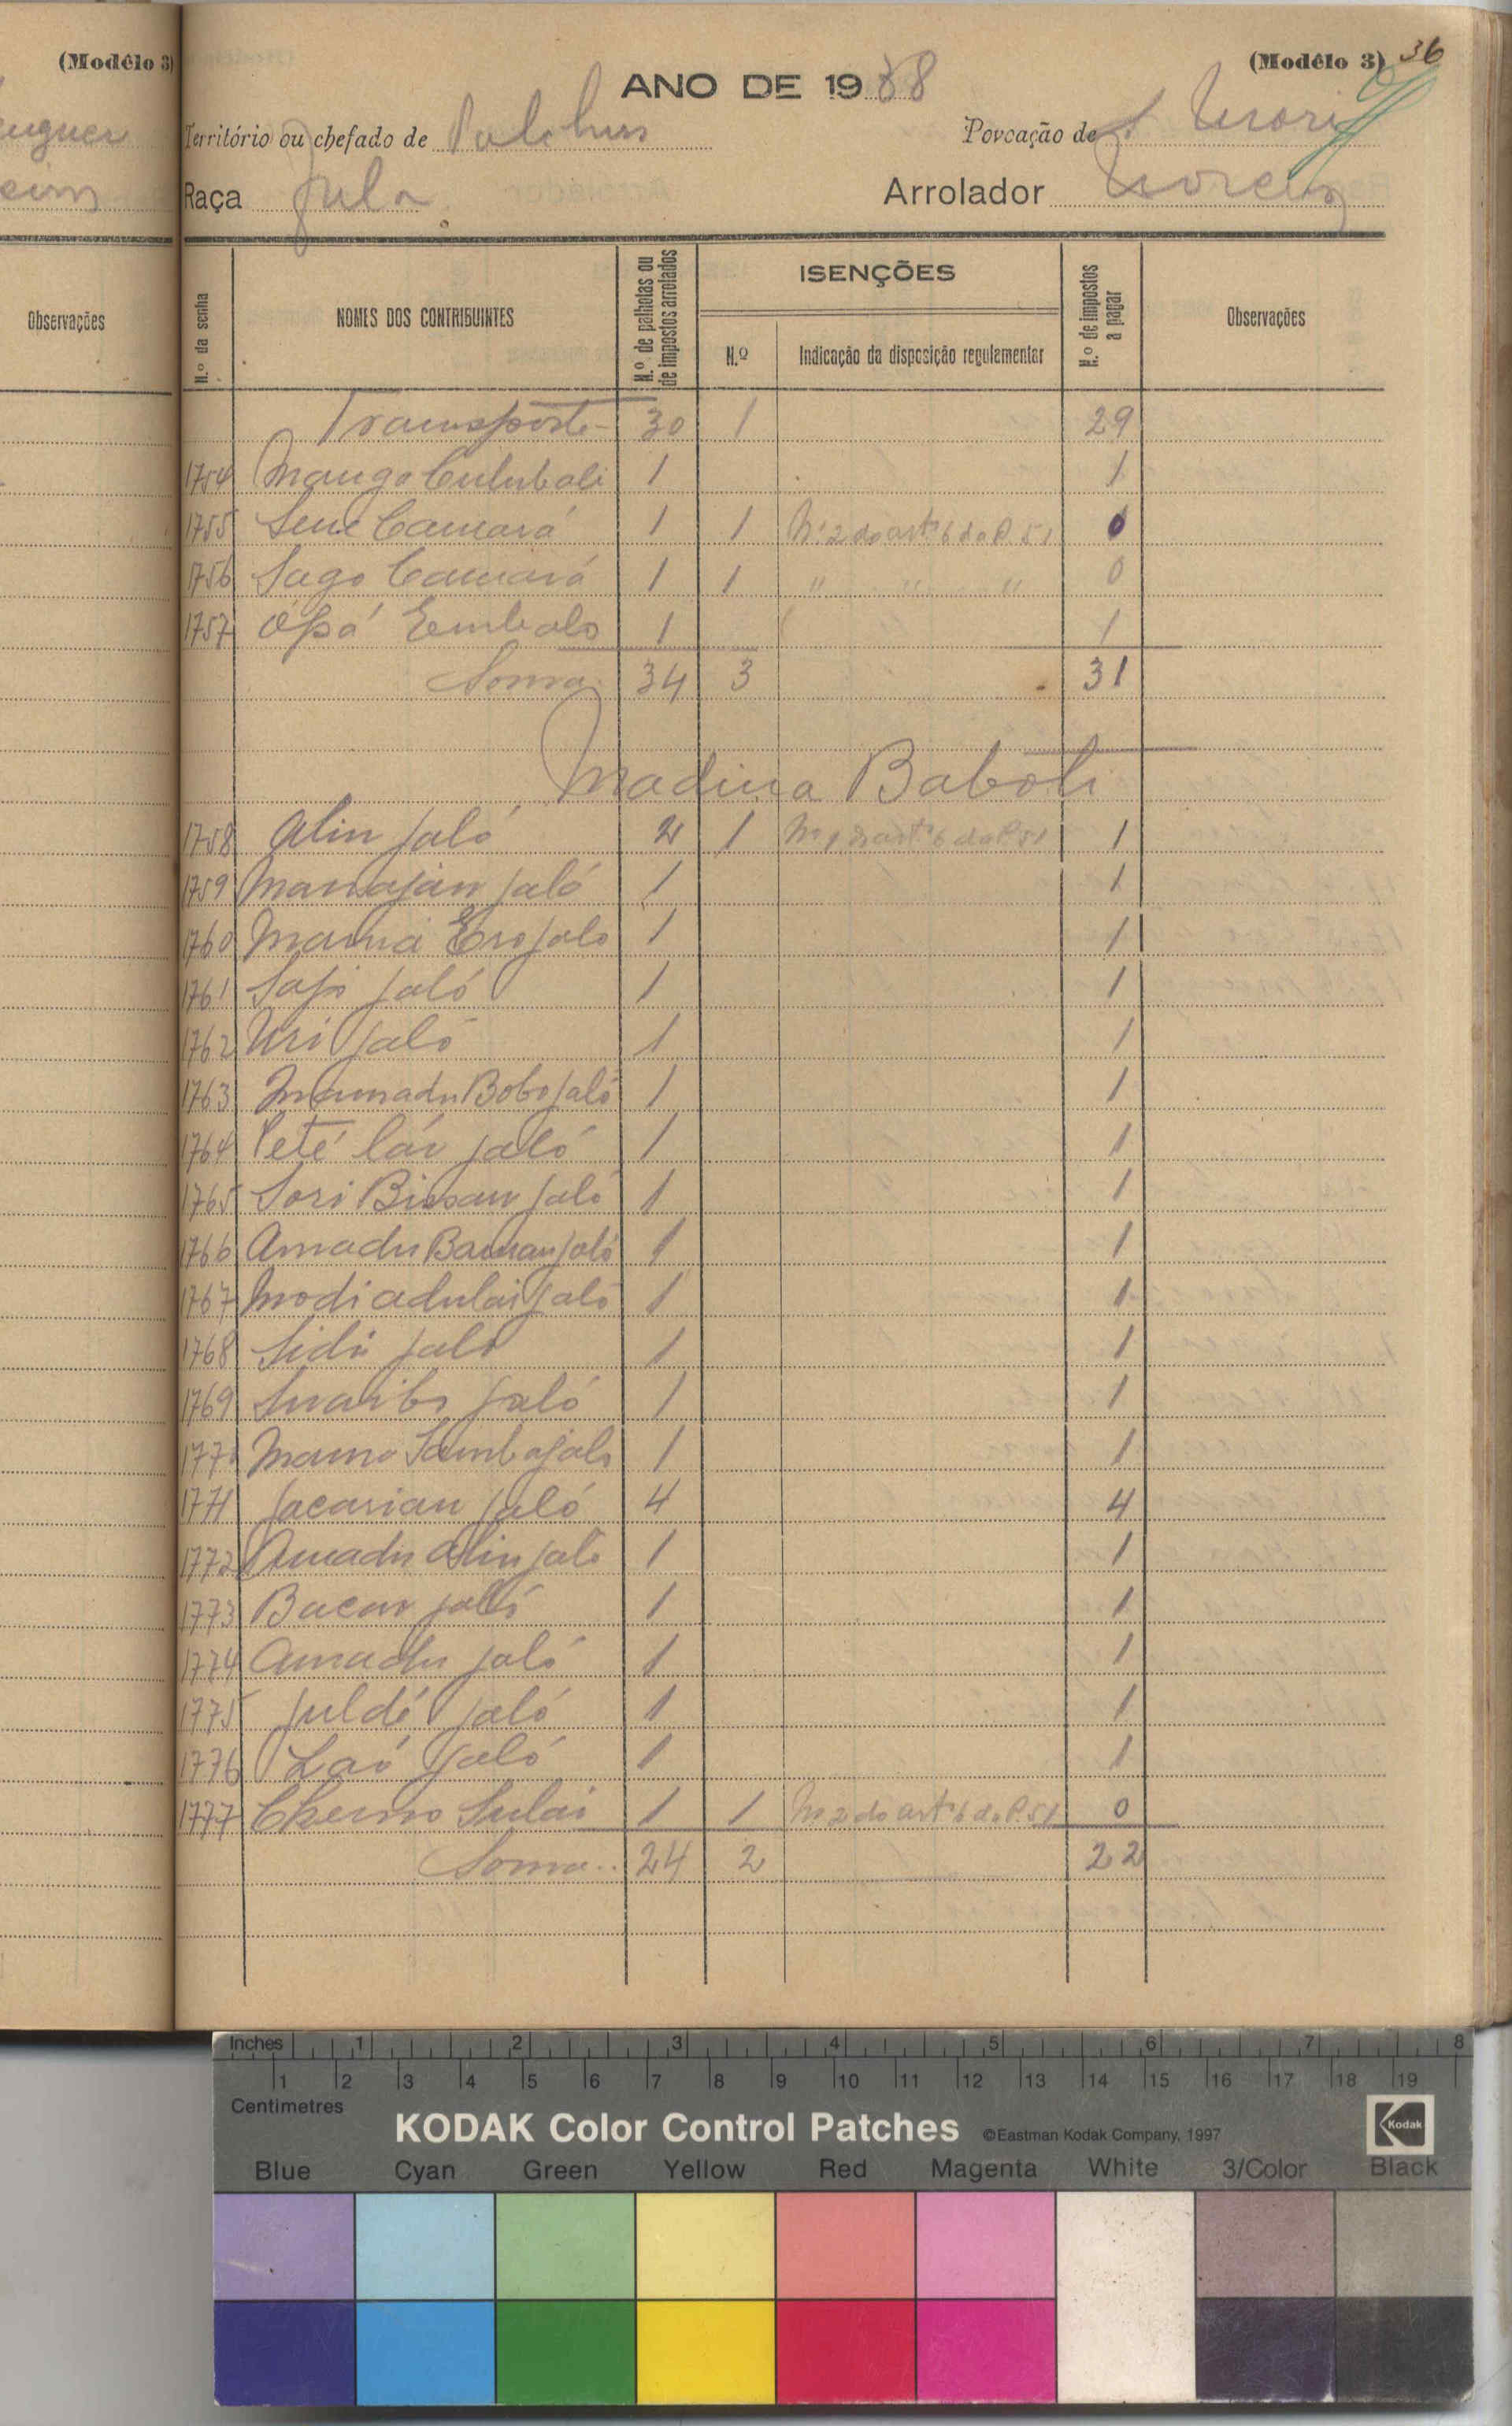 (Modêlo 3)
(Modêlo 3) 36
ANO DE 1938
Território ou chefado de Povoação de
Raça Fula Arrolador
Observações
N.º da senha NOMES DOS CONTRIBUINTES N.º de palhotas ou de impostos arrolados ISENÇÕES N.º Indicação da disposição regulamentar N.º de impostos a pagar Observações
Transporte 30 1 29
1754 Mango Culubali 1 1
1755 Sene Camará 1 1 Nº 2 do artº 6 do P. 51 0
1756 Sago Camará 1 1 " " " 0
1757 Embalo 1 1
Soma 34 3 31
Madina Baboli
1758 Alin Jaló 2 1 Nº 1 do artº 6 do P. 51 1
1759 Manajan Jaló 1 1
1760 Mamá Ero Jalo 1 1
1761 Jaló 1 1
1762 Uri Jaló 1 1
1763 Mamadu Bobo Jaló 1 1
1764 Peté Jaló 1 1
1765 Sori Bissan Jaló 1 1
1766 Amadu Jaló 1 1
1767 Modi adulai Jaló 1 1
1768 Sidi Jaló 1 1
1769 Suaibo Jaló 1 1
1770 Mamo Samba Jalo 1 1
1771 Jacarian Jaló 4 4
1772 Amadu Alin Jaló 1 1
1773 Bacar Jaló 1 1
1774 Amadu Jaló 1 1
1775 Juldé Jaló 1 1
1776 Laó Jaló 1 1
1777 Cherno Sulai 1 1 Nº 2 do artº 6 do P. 51 0
Soma.. 24 2 22
Inches 1 2 3 4 5 6 7 8
1 2 3 4 5 6 7 8 9 10 11 12 13 14 15 16 17 18 19
Centimetres
KODAK Color Control Patches ©Eastman Kodak Company, 1997 Kodak
Blue Cyan Green Yellow Red Magenta White 3/Color Black